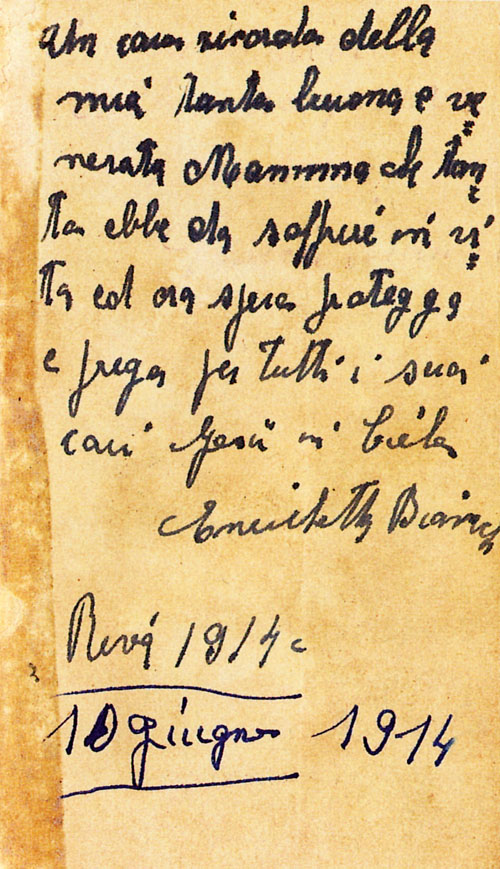 Un caro ricordo della
mia tanto buona e ve
nerata Mamma che tan
to ebbe da soffrire in vi
ta ed ora spero protegga
e prega per tutti i suoi
cari Gesù in Cielo
Enrichetta
Revò 1914
10 Giugno 1914